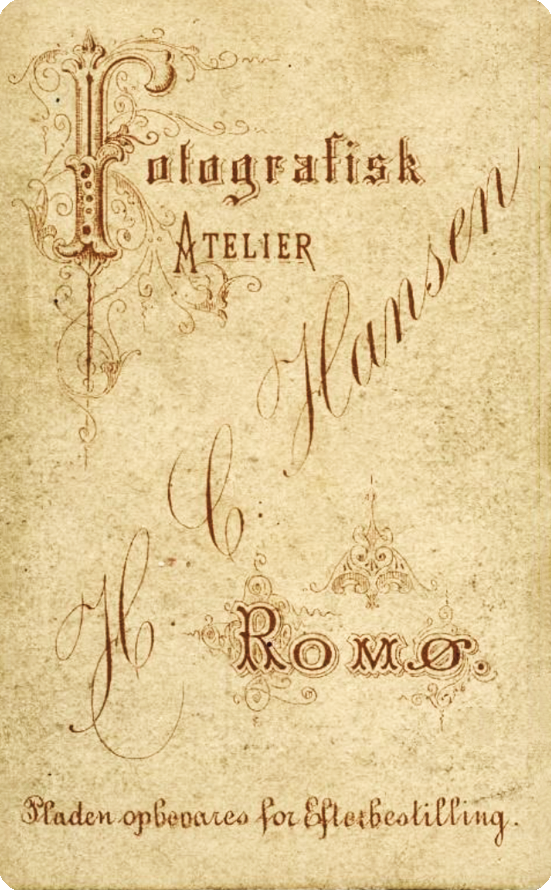 Fotografisk
ATELIER
H. C. Hansen
ROMØ.
Pladen opbevares for Efterbestilling.